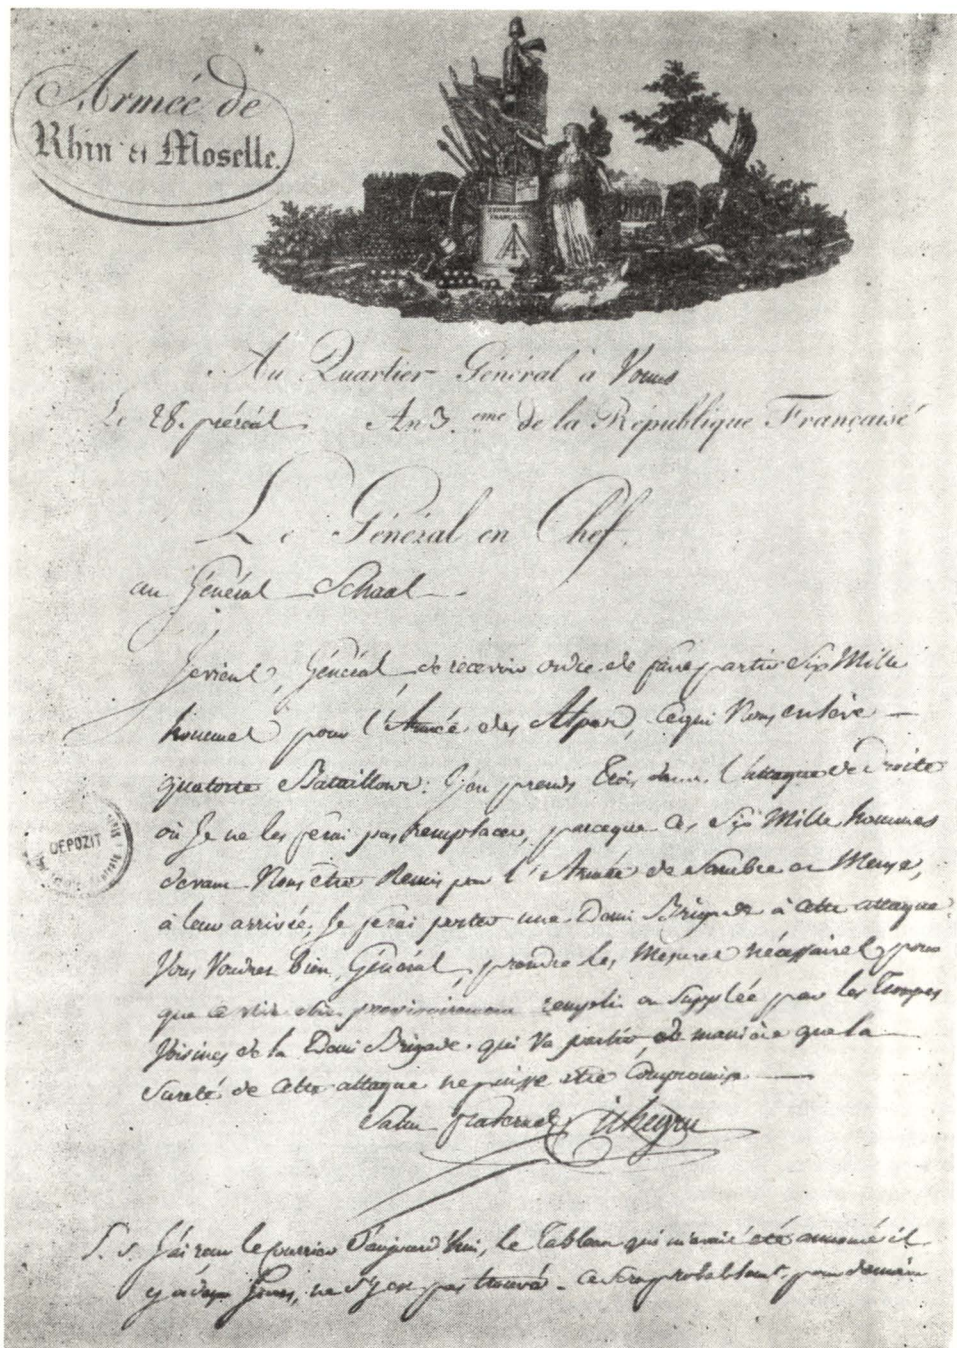 Armée de
Rhin et Moselle.
RÉPUBLIQUE
FRANÇAISE
Au Quartier Général à Worms
Le 28. préréal An 3.eme de la République Française
Le Général en Chef.
au Général Schaal
Je viens, Général, de recevoir ordre de faire partir Six Mille
hommes pour l'Armée des Alpes, ce qui Nous enlève
quatorze Bataillons: j'en prends trois dans l'attaque de Droite
où Je ne les ferai pas remplacer, parceque Ces Six Mille hommes
devant Nous être Remis par l'Armée de Sambre et Meuse,
à leur arrivée, Je ferai porter une Demi Brigade à cette attaque.
Vous Voudrez bien, Général, prendre les Mesures nécessaires pour
que ce soit provisoirement rempli ou Supplée par les Troupes
Voisines de la Demi Brigade qui Va partir, de manière que la
Sureté de Cette attaque ne puisse être Compromise
DEPOZIT
Salut fraternel Pichegru
P. S. J'ai reçu le courrier d'aujourd'hui, le Tableau qui m'avait été annoncé il
y a deux Jours, ne s'y est pas trouvé. Ce sera probablement pour demain